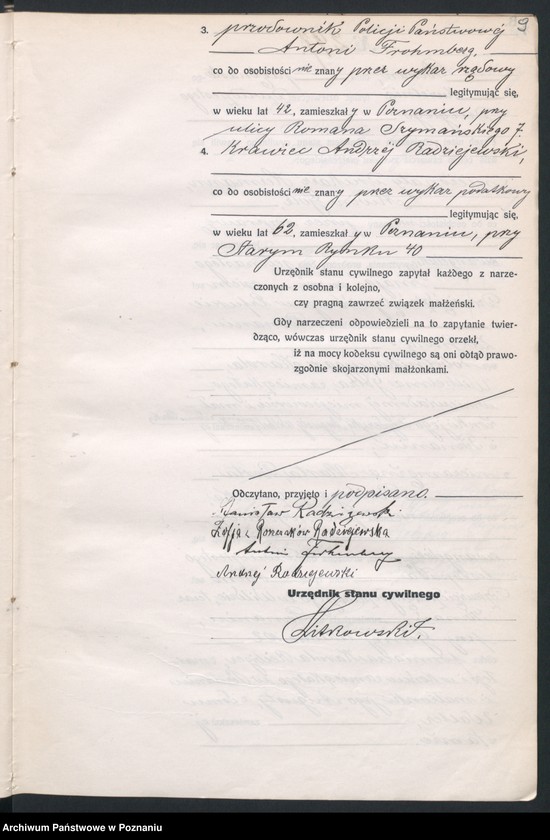 9
3. przodownik Policji Państwowej
Antoni Frohmberg,
co do osobistości nie znany przez wykaz rządowy
legitymując się,
w wieku lat 42, zamieszkały w Poznaniu, przy
ulicy Romana Szymańskiego 7.
4. Krawiec Andrzéj Radziejewski,
co do osobistości nie znany przez wykaz podatkowy
legitymując się,
w wieku lat 62, zamieszkały w Poznaniu, przy
Starym Rynku 40
Urzędnik stanu cywilnego zapytał każdego z narze-
czonych z osobna i kolejno,
czy pragną zawrzeć związek małżeński.
Gdy narzeczeni odpowiedzieli na to zapytanie twier-
dząco, wówczas urzędnik stanu cywilnego orzekł,
iż na mocy kodeksu cywilnego są oni odtąd prawo-
zgodnie skojarzonymi małżonkami.
Odczytano, przyjęto i podpisano.
Stanisław Radziejewski
Zofja z Radziejewska
Antoni Frohmberg
Andrzej Radziejewski
Urzędnik stanu cywilnego
Archiwum Państwowe w Poznaniu